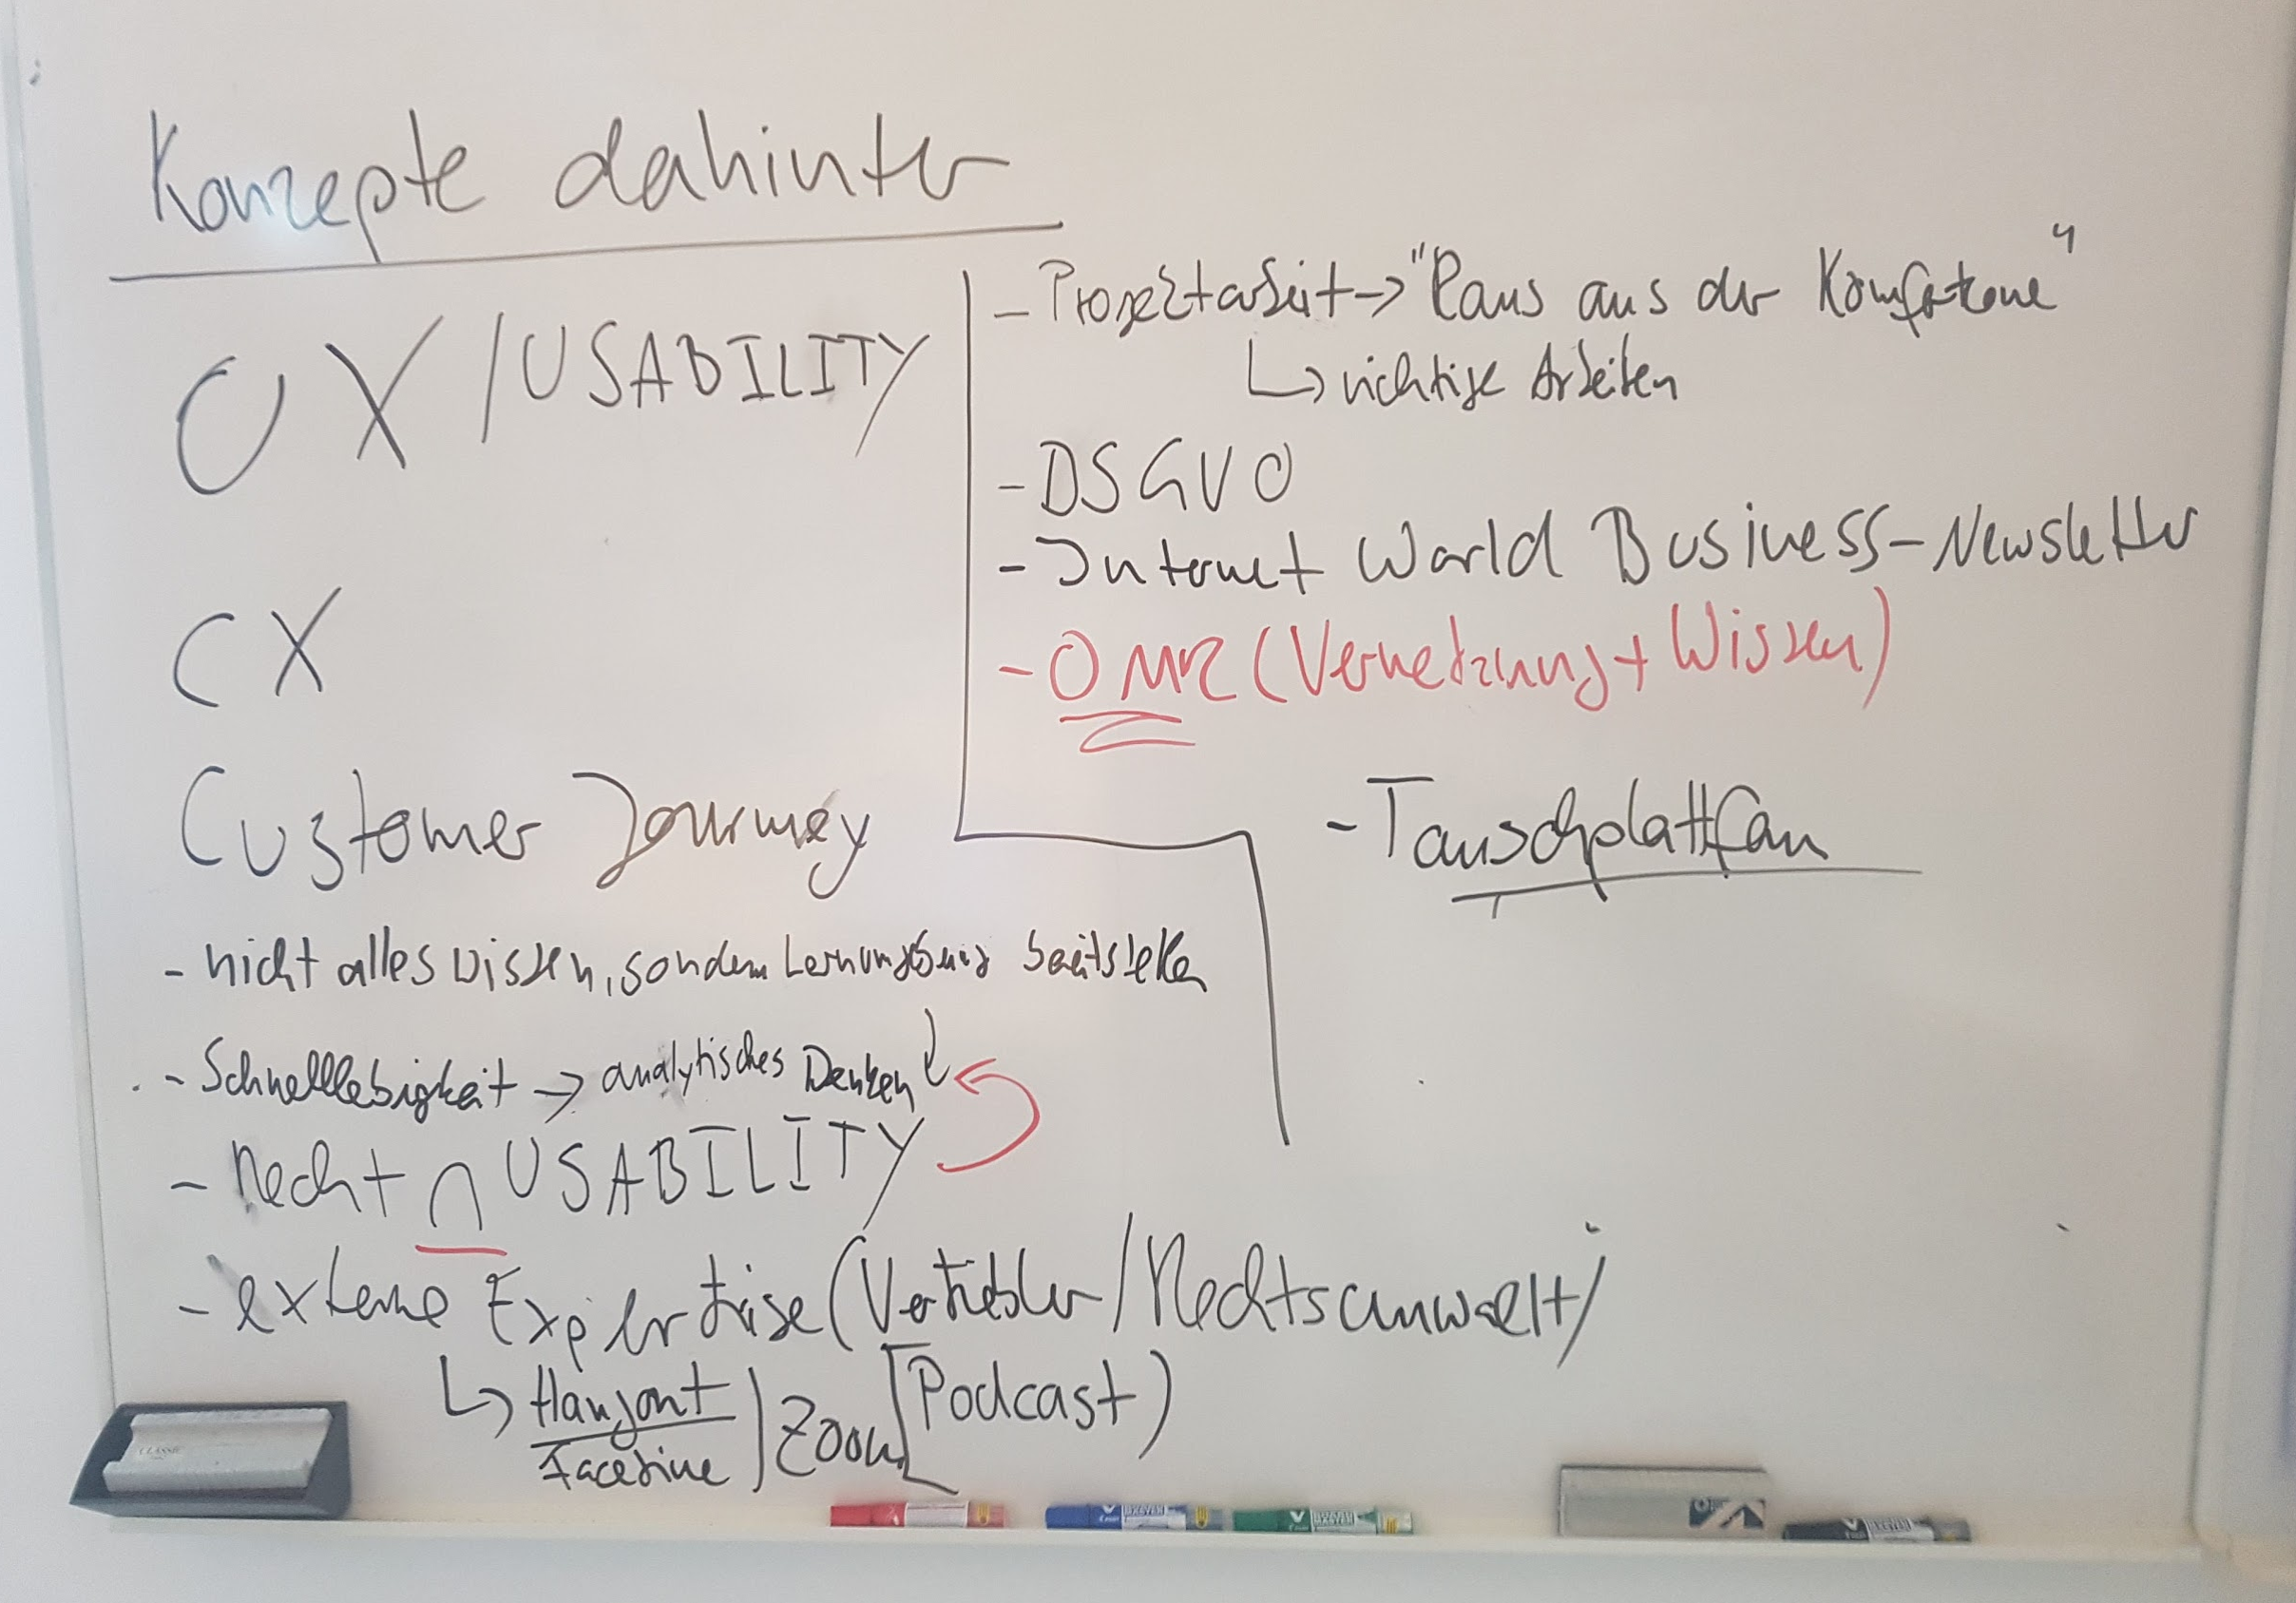 Konzepte dahinter
UX / USABILITY
CX
Customer Journey
- nicht alles wissen, sondern bereitstellen
- Schnelllebigkeit → analytisches Denken
- Recht ∩ USABILITY
- externe Expertise (Vertriebler / Rechtsanwalt)
↳ Hangout / Zoom [Podcast)
Facetime
- Projektarbeit → "Raus aus der Komfortzone"
↳ richtige Arbeiten
- DSGVO
- Internet World Business-Newsletter
- OMR (Vernetzung + Wissen)
- Tauschplattform